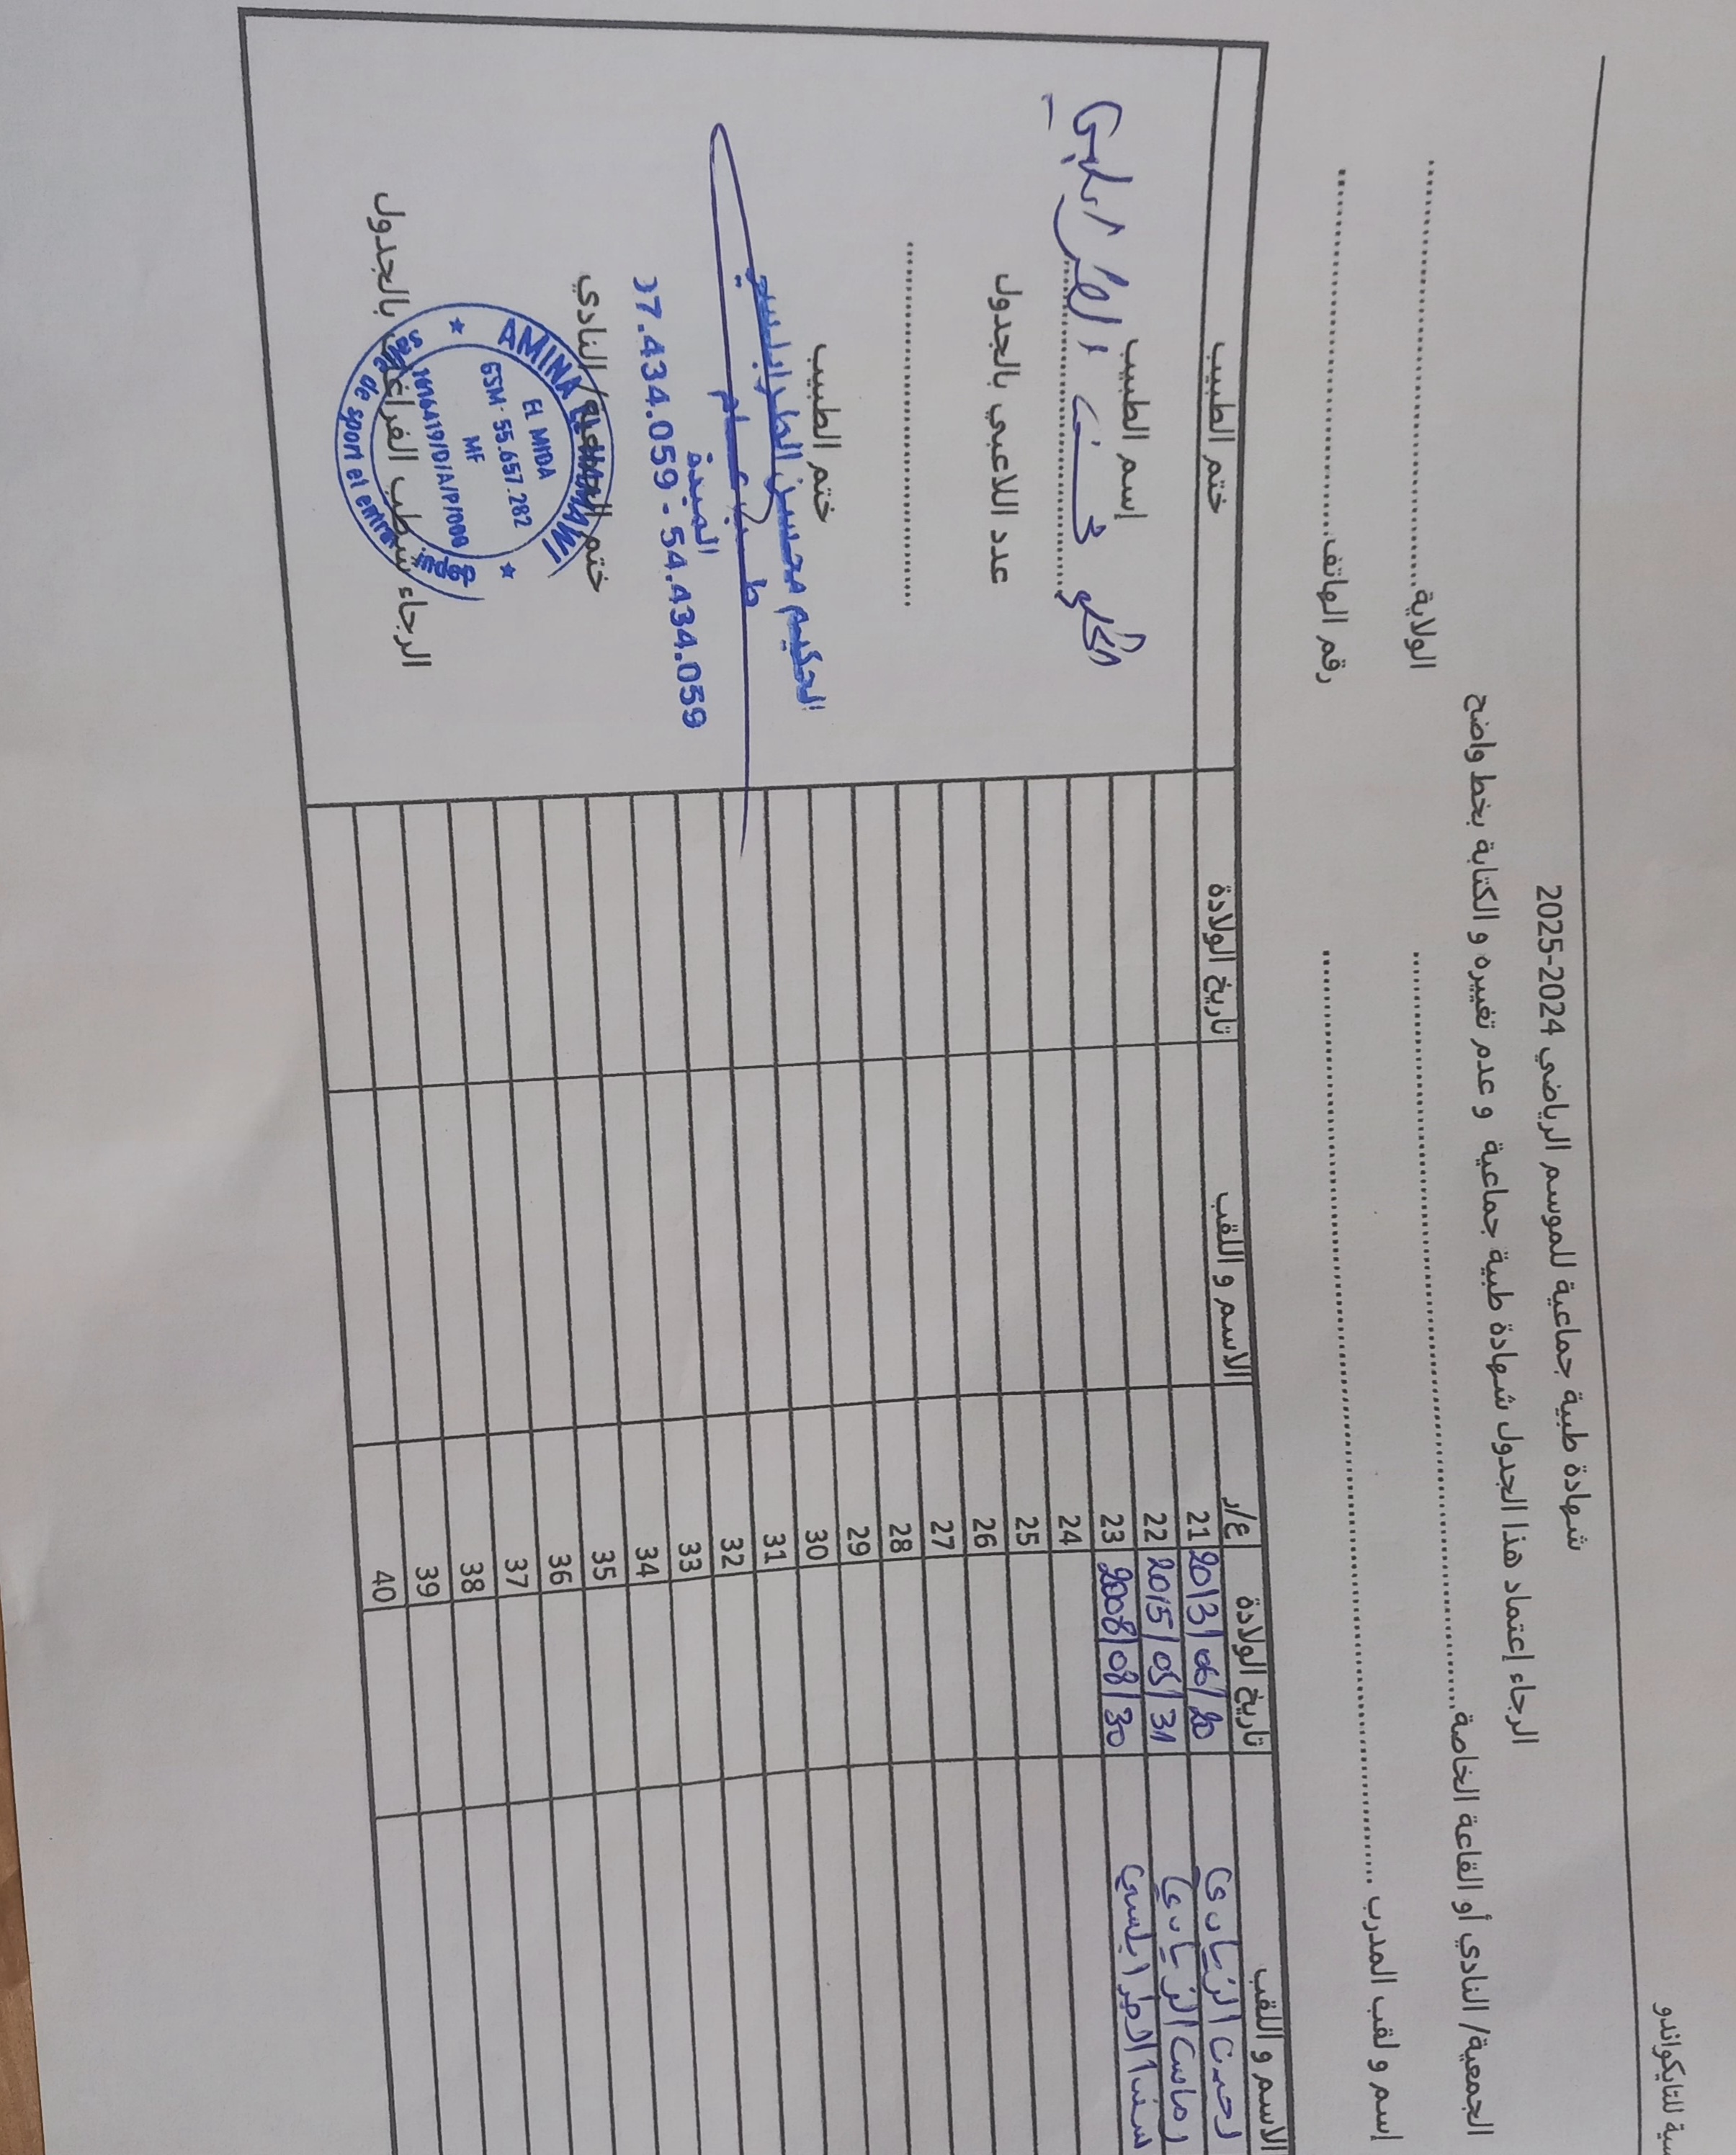 سية للتايكواندو
شهادة طبية جماعية للموسم الرياضي 2024-2025
الرجاء إعتماد هذا الجدول شهادة طبية جماعية و عدم تغييره و الكتابة بخط واضح
الجمعية/ النادي أو القاعة الخاصة.......................................................... الولاية..........................
إسم و لقب المدرب .......................................................... رقم الهاتف..........................
الاسم و اللقب تاريخ الولادة ع/ر الاسم و اللقب تاريخ الولادة ختم الطبيب
الزيادي 2013/06/20 21
الزيادي 2015/05/31 22
الطرابلسي 2008/08/30 23
24
25
26
27
28
29
30
31
32
33
34
35
36
37
38
39
40
إسم الطبيب
الطرابلسي
عدد اللاعبي بالجدول
..........................
ختم الطبيب
الحكيم محسن الطرابلسي
طبيب عام
الميدة
97.434.059 - 54.434.059
ختم الجمعية/ النادي
AMINA
EL MIDA
GSM: 55.657.282
MF
Salle de sport et
الرجاء شطب الفراغات بالجدول